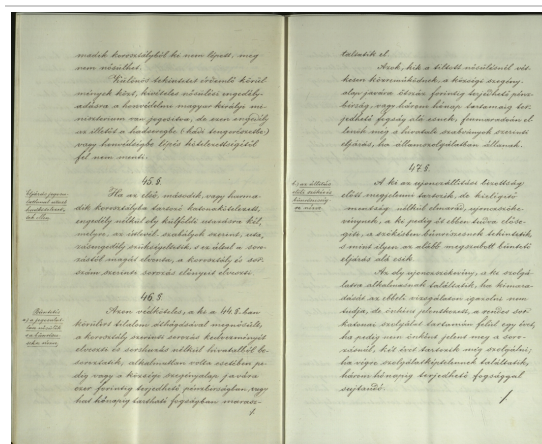 második korosztályból ki nem lépett, meg
nem nősülhet.
Különös tekintetet érdemlő körül-
mények közt, kivételes nősülési engedély
adására a honvédelmi magyar királyi mi-
nisterium van jogosítva, de ezen engedély
az illetőt a hadseregbe (hadi tengerészetbe)
vagy honvédségbe lépés kötelezettségétől
fel nem menti.
45. §.
Ha az első, második, vagy harma-
dik korosztályba tartozó katonaköteleztetett,
engedély nélkül oly külföldi utazásra kél,
melyre, az idevált szabályok szerint, uta-
zási engedély szükségeltetik s ez által a soro-
zástól magát elvonta, a korosztály és sors-
szám szerinti sorozás előnyét elveszti.
46. §.
Azon védköteles, a ki a 44. §-ban
körülírt tilalom áthágásával megnősült,
a korosztály szerinti sorozás kedvezményét
elveszti és sorshúzás nélkül hivatalból be-
soroztatik, alkalmatlan volta esetében pe-
dig vagy a községi szegényalap javára
ezer forintig terjedhető pénzbírságban, vagy
hat hónapig tartható fogságban marasz-
taltatik el.
Azok, kik a tiltott nősülésnél vét-
kesen közreműködnek, a községi szegény
alap javára ötszáz forintig terjedhető pénz-
bírság, vagy három hónap tartamáig ter-
jedhető fogság alá esnek, fennmaradván el-
lenök még a hivatali szabványok szerinti
eljárás, ha államszolgálatban állanak.
47. §.
A ki az ujonczállítási bizottság
előtt megjelenni tartozik, de kielégítő
mentség nélkül elmarad, ujonczszöke-
vénynek, a ki pedig őt ebben tudva előse-
gíti, a szökésben bűnrészesnek tekintetik
s mint ilyen az alább megszabott büntető
eljárás alá esik.
Az oly ujonczszökevény, a ki szolgá-
latra alkalmasnak találtatik, ha kimara-
dását az ebbeli vizsgálaton igazolni nem
tudja, de önkint jelentkezett, a rendes sor-
katonai szolgálat tartamán felül egy évet,
ha pedig nem önként jelent meg a soro-
zásnál két évet tartozik még szolgálni;
ha végre szolgálatképtelennek találtatik,
három hónapig terjedhető fogsággal
sujtandó.